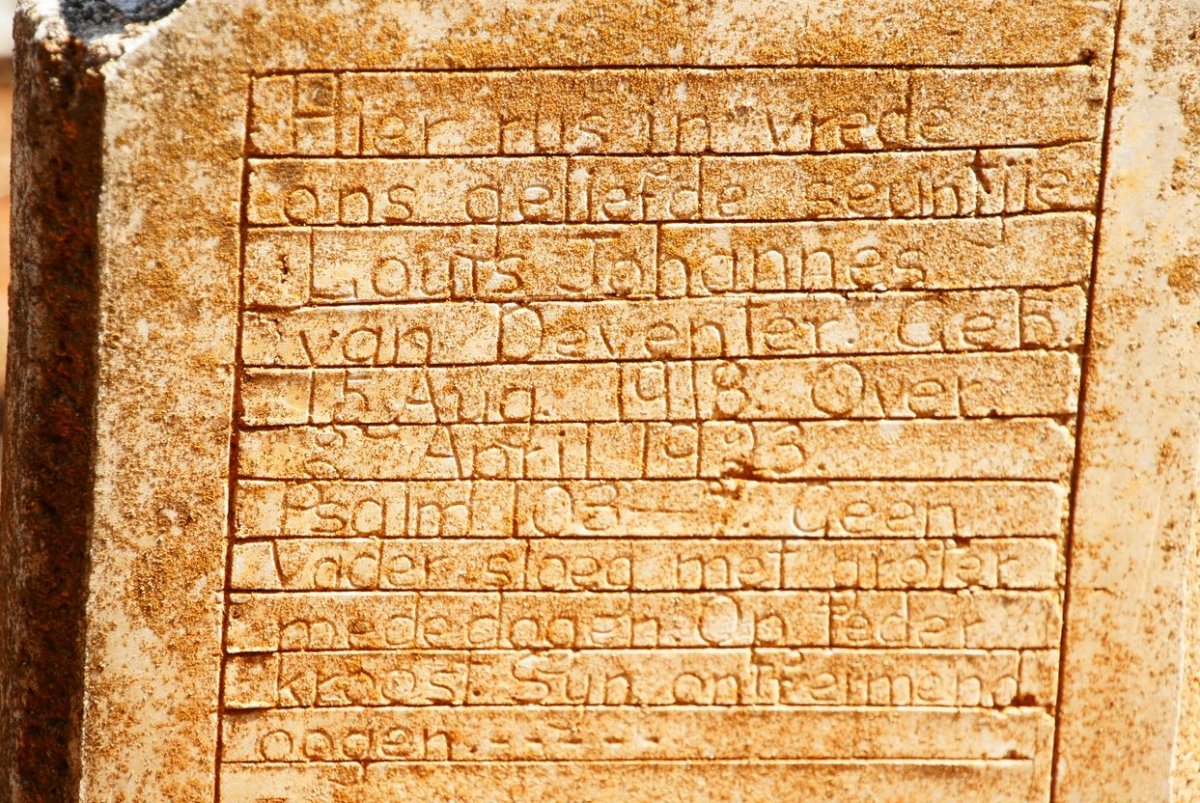 Hier rus in vrede
ons geliefde seuntjie
Louis Johannes
van Deventer. Geb.
15 Aug. 1918. Over
8ste April 1923
Psalm 103 — Geen
Vader sloeg met groter
mededogen. Op teder
kroost Syn ontfermend
oogen. - - - - -